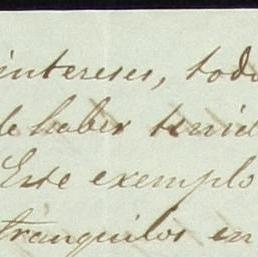 intereses, todo
de haber tenid
Este exemplo
tranquilos en